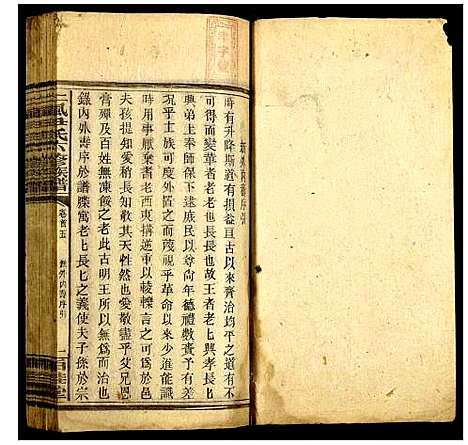 內外壽序引
時有升降斯道有損益亘古以來齊治均平之道有不
可得而變革者老老長長也故王者老老興孝長長
興弟上奉師保下逮庶民所以來德禮敷賚予有
況乎士族可度外置之而蔑視乎革命以來少進能識
時用事厭棄者老西東搆遘重以轅轢言之可於邑
夫孩提知愛稍長知敬其天性然也愛敬盡于父兄恩
膏殫及百姓無凍餒之老此古明王所以無為而治也
錄內外壽序於譜牒寓老老長長之義使夫子孫於宗
鳳尹氏六修族譜
卷首五
內外壽序引